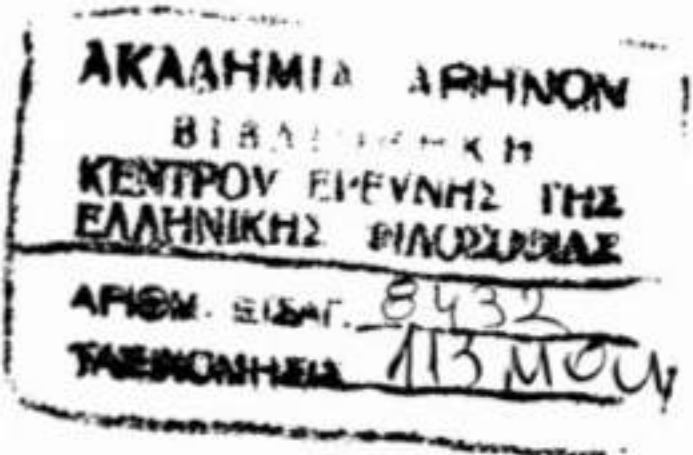 ΑΚΑΔΗΜΙΑ ΑΘΗΝΩΝ
ΒΙΒΛΙΟΘΗΚΗ
ΚΕΝΤΡΟΥ ΕΡΕΥΝΗΣ ΤΗΣ
ΕΛΛΗΝΙΚΗΣ ΦΙΛΟΣΟΦΙΑΣ
ΑΡΙΘΜ. ΕΙΣΑΓ. 8432
ΤΑΞΙΝΟΜΗΣΙΣ 113 ΜΟυ